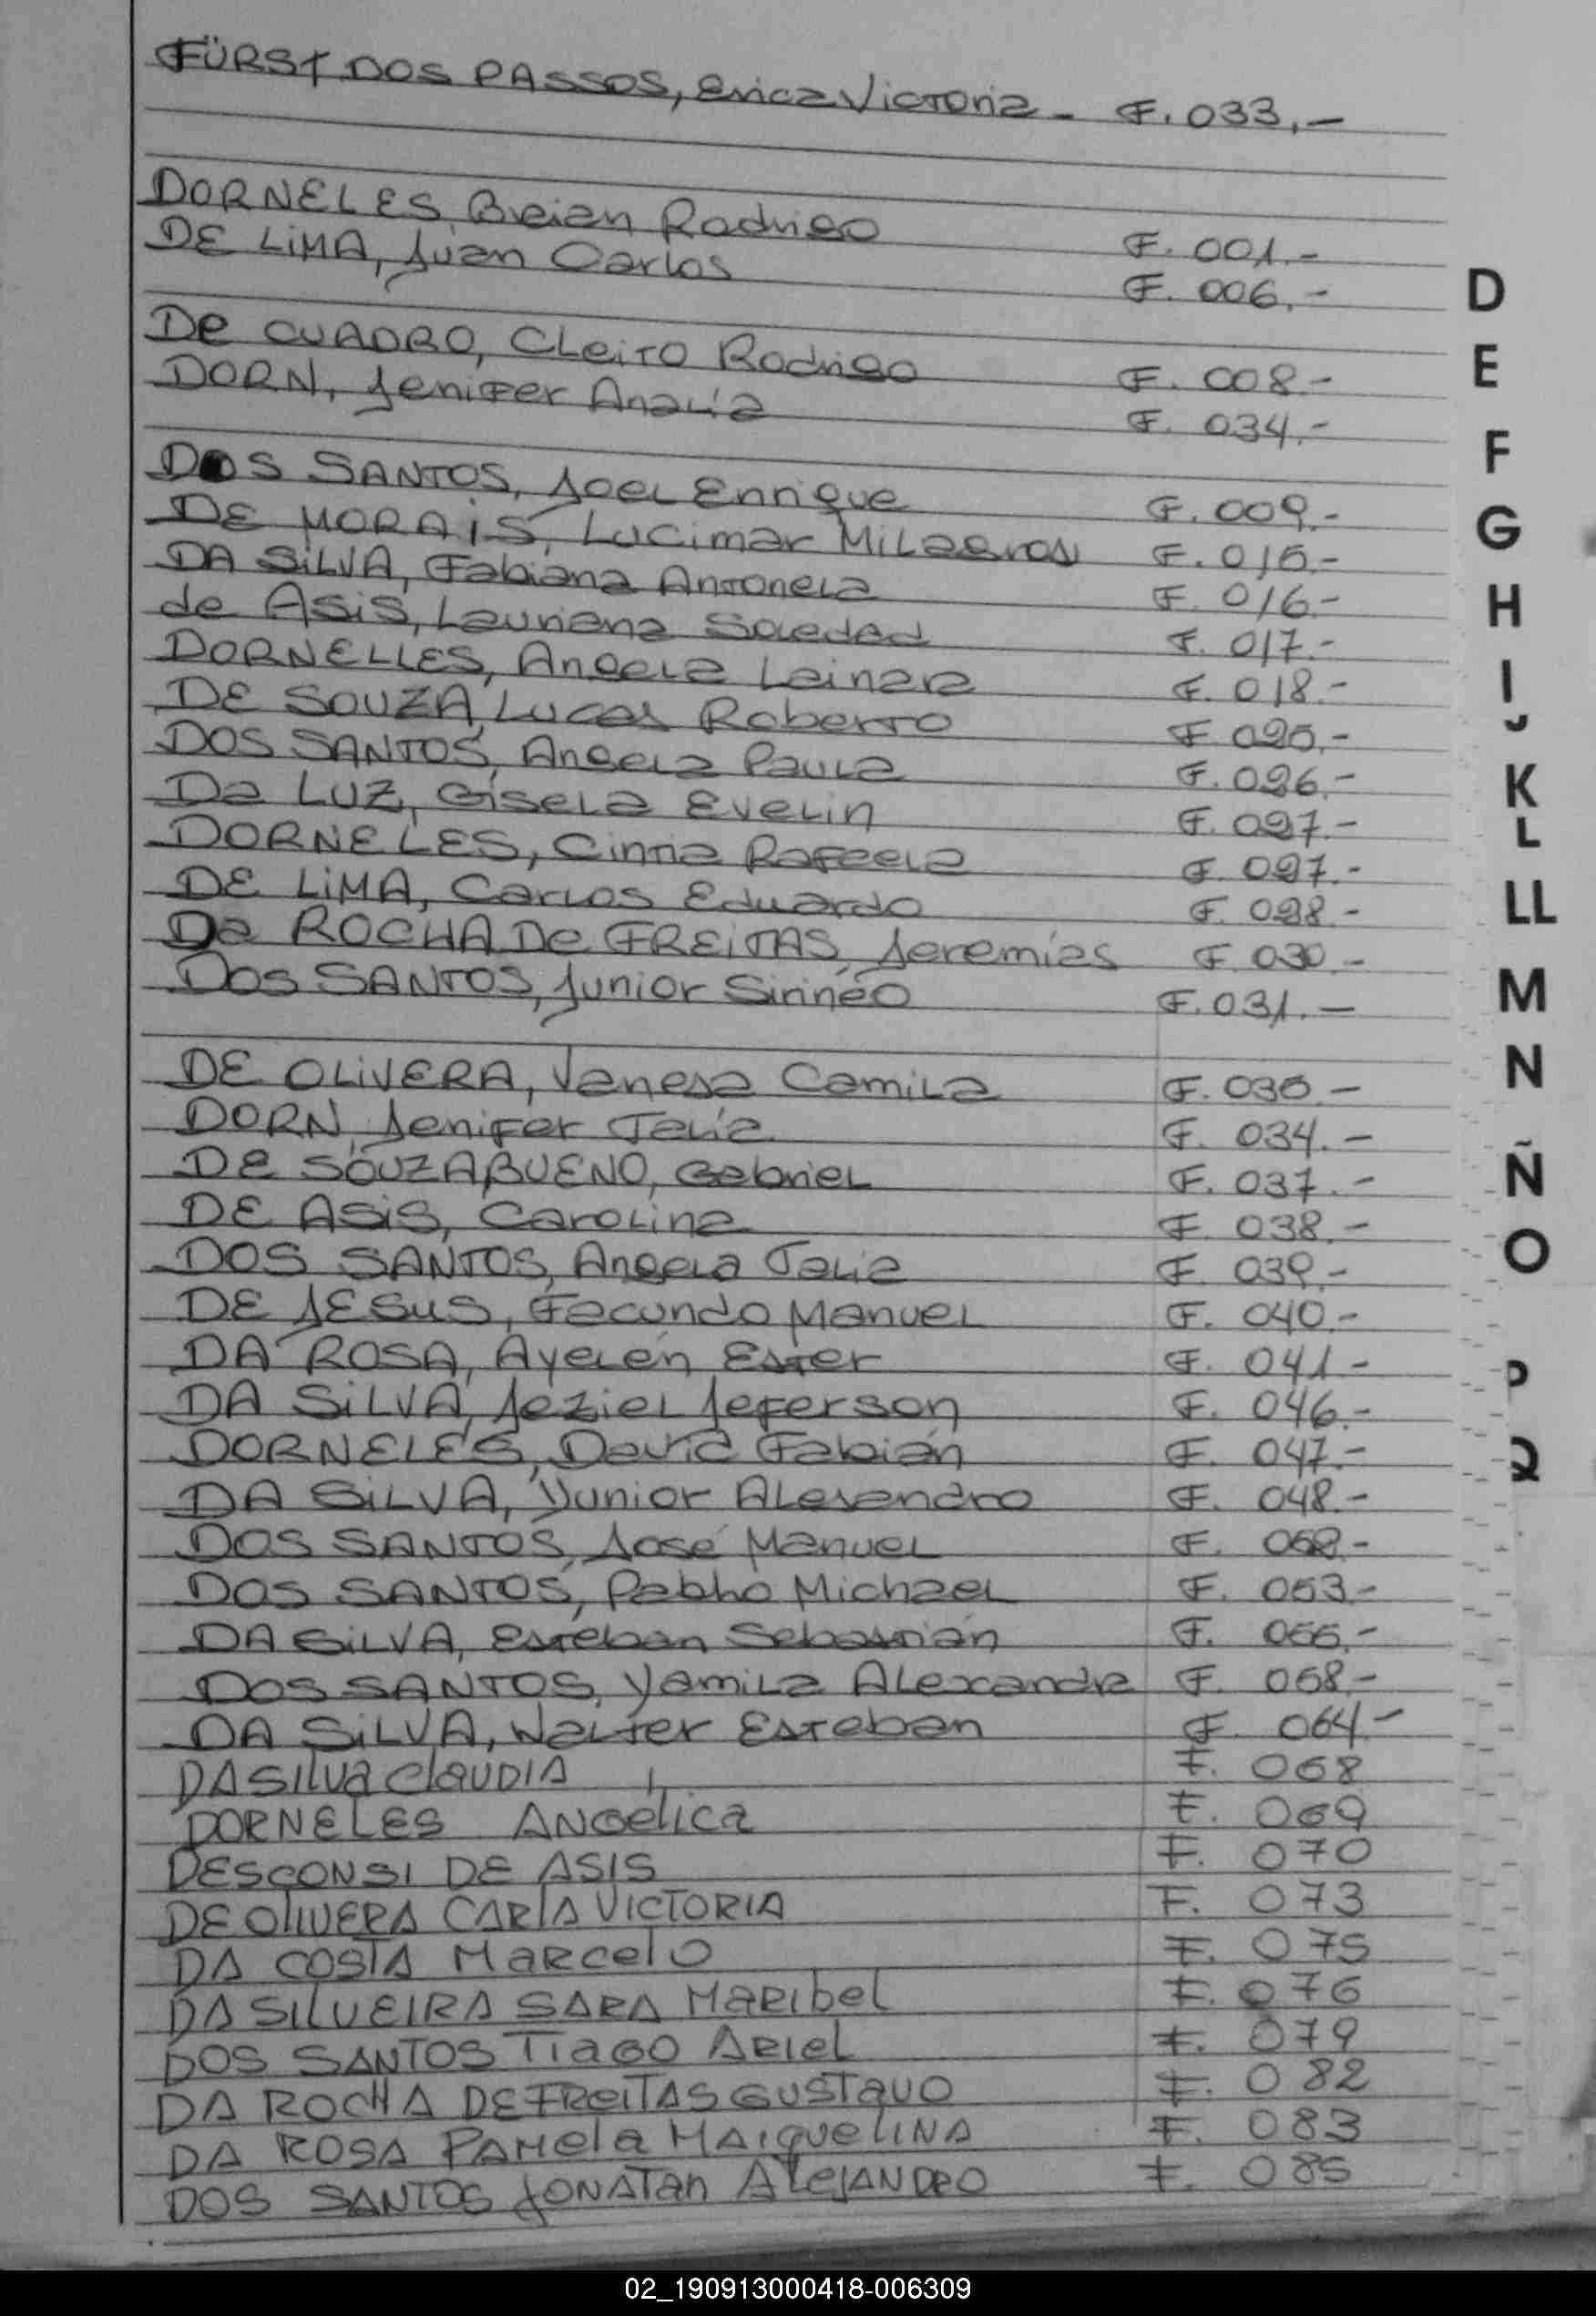 FÜRST DOS PASSOS, Erica Victoria - F. 033.-
DORNELES, Breian Rodrigo F. 001.-
DE LiMA, Juan Carlos F. 006.-
De CUADRO, CLeiTO Rodrigo F. 008.-
DORN, Jenifer Analía F. 034.-
DOS SANTOS, Joel Enrique F. 009.-
DE MORAiS, Lucimar Milagros F. 015.-
DA SiLVA, Fabiana Antonela F. 016.-
de Asis, Lauriana Soledad F. 017.-
DORNELLES, Angela Leinara F. 018.-
DE SOUZA, Lucas Roberto F. 025.-
DOS SANTOS, Angela Paula F. 026.-
Da LUZ, Gisela Evelin F. 027.-
DORNELES, Cintia Rafaela F. 027.-
DE LiMA, Carlos Eduardo F. 028.-
Da ROCHA De FREiTAS, Jeremías F. 030.-
Dos SANTOS, Junior Sirinéo F. 031.-
DE OLiVERA, Vanesa Camila F. 035.-
DORN, Jenifer Talía F. 034.-
De SOUZA BUENO, Gabriel F. 037.-
DE ASiS, Carolina F. 038.-
DOS SANTOS, Angela Talia F. 039.-
DE JESUS, Facundo Manuel F. 040.-
DA ROSA, Ayelén Ester F. 041.-
DA SiLVA, Jeziel Jeferson F. 046.-
DORNELES, David Fabián F. 047.-
DA SiLVA, Yunior Alexandro F. 048.-
DOS SANTOS, José Manuel F. 052.-
DOS SANTOS, Pablo Michael F. 053.-
DA SiLVA, Esteban Sebastián F. 055.-
DOS SANTOS, Yamila Alexandra F. 058.-
DA SiLVA, Walter Esteban F. 064.-
DA SILVA CLAUDIA F. 068
DORNELES ANGELICA F. 069
DESCONSI DE ASIS F. 070
DE OLIVERA CARLA VICTORIA F. 073
DA COSTA MARCELO F. 075
DA SILVEIRA SARA MARIBEL F. 076
DOS SANTOS TIAGO ARIEL F. 079
DA ROCHA DE FREITAS GUSTAVO F. 082
DA ROSA PAMELA MAIQUELINA F. 083
DOS SANTOS JONATAN ALEJANDRO F. 085
D
E
F
G
H
I
J
K
L
LL
M
N
Ñ
O
P
Q
02_190913000418-006309